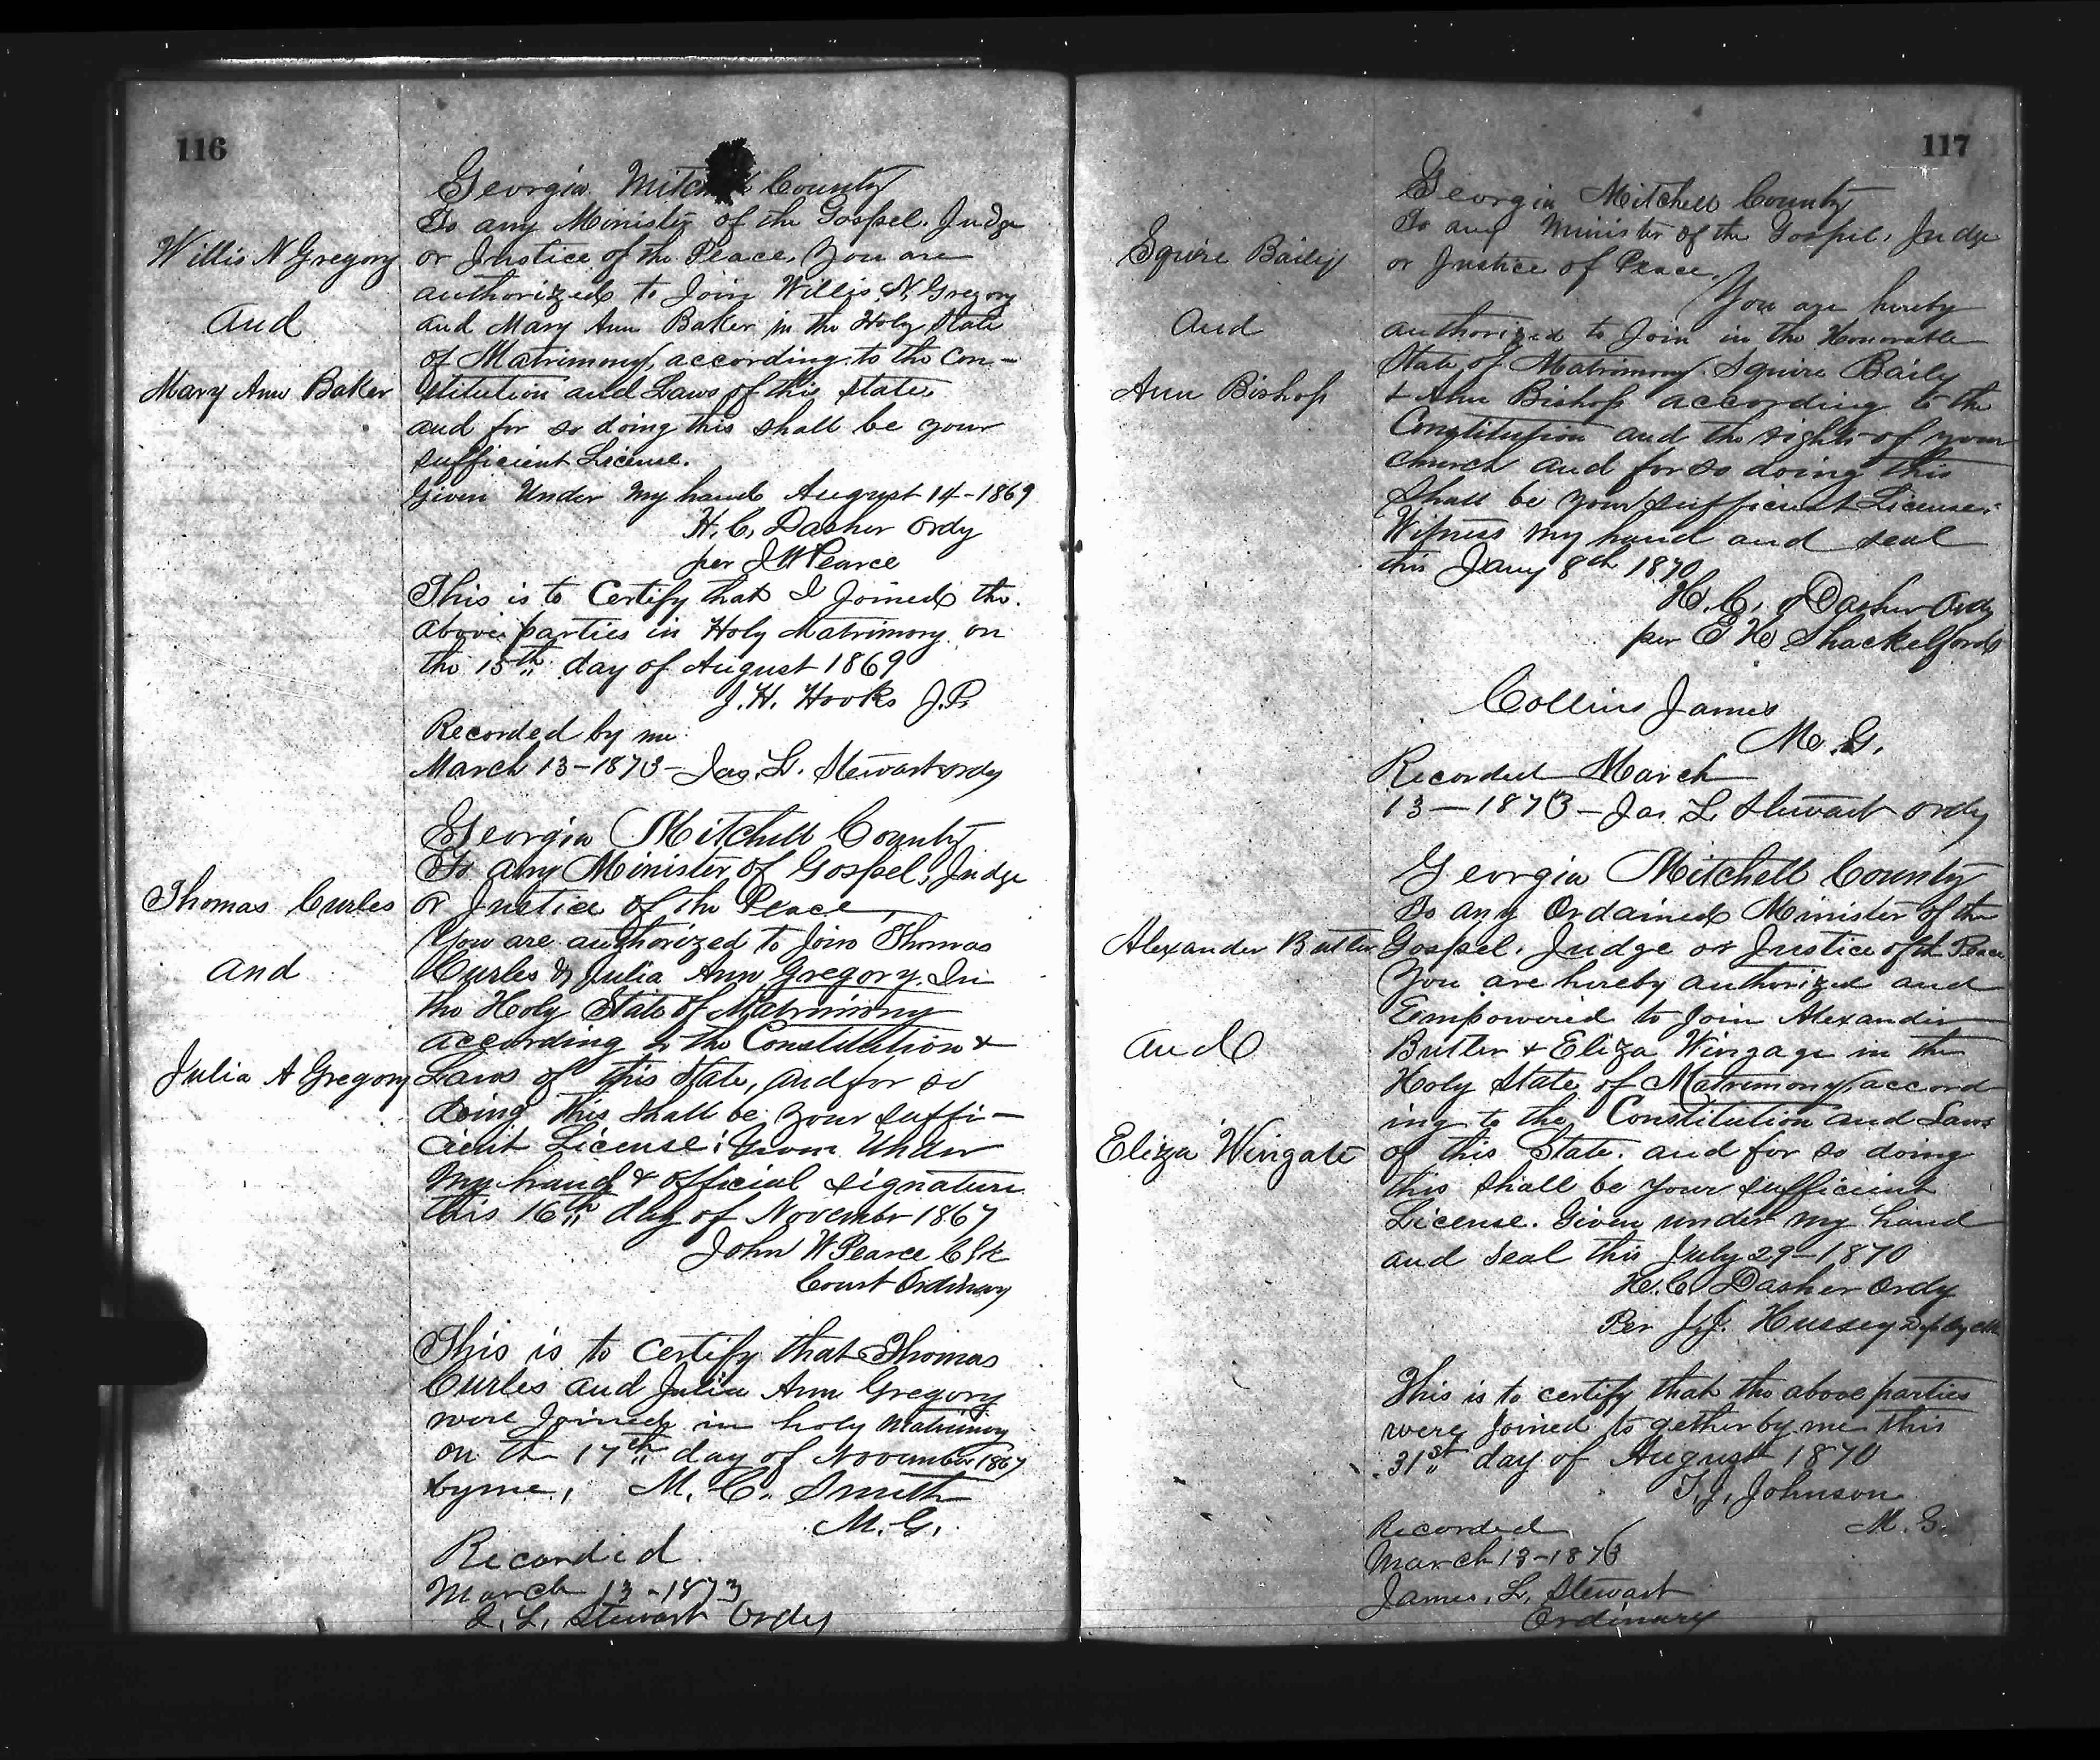 116
Georgia Mitchell County
To any Minister of the Gospel, Judge
Willis N Gregory
or Justice of the Peace, You are
authorized to Join Willis N. Gregory
and
and Mary Ann Baker in the Holy State
of Matrimony, according to the Con-
Mary Ann Baker
stitution and Laws of this State
and for so doing this shall be your
sufficient License.
Given Under My hand August 14-1869
H. C. Dasher Ordy
per J W Pearce
This is to Certify that I Joined the
above parties in Holy Matrimony on
the 15th day of August 1869
J. H. Hooks J.P.
Recorded by me
March 13-1873- Jas. L. Stewart ordy
Georgia Mitchell County
To any Minister of Gospel, Judge
Thomas Curles
or Justice of the Peace,
You are authorized to Join Thomas
and
Curles & Julia Ann Gregory. In
the Holy State of Matrimony
according to the Constitution &
Julia A Gregory
Laws of this State, and for so
doing this shall be your suffi-
cient License; Given Under
My hand & official signature
this 16th day of November 1867
John W Pearce Clk
Court Ordinary
This is to certify that Thomas
Curles and Julia Ann Gregory
were Joined in holy Matrimony
on the 17th day of November 1867
by me, M. C. Smith
M. G.
Recorded
March 13-1873
J. L. Stewart Ordy
117
Georgia Mitchell County
To any Minister of the Gospel, Judge
Squire Baily
or Justice of Peace,
You are hereby
and
authorized to Join in the Honorable
State of Matrimony Squire Baily
Ann Bishop
& Ann Bishop according to the
Constitution and the rights of your
church and for so doing this
Shall be your sufficient License.
Witness my hand and seal
this Jany 8th 1870
H. C. Dasher Ordy
per E H Shackelford
Collins James
M. G.
Recorded March
13-1873-Jas. L. Stewart ordy
Georgia Mitchell County
To any Ordained Minister of the
Alexander Butler
Gospel, Judge or Justice of th Peace
You are hereby authorized and
Empowered to Join Alexander
and
Butler & Eliza Wingage in the
Holy State of Matrimony accord
ing to the Constitution and Laws
Eliza Wingate
of this State. and for so doing
this shall be your sufficient
License. Given under my hand
and seal this July 29-1870
H. C. Dasher Ordy
Per J. J. Hussey
This is to certify that the above parties
were Joined to gether by me this
31st day of August 1870
T. J. Johnson
M. G.
Recorded
March 13-1873
James. L. Stewart
Ordinary